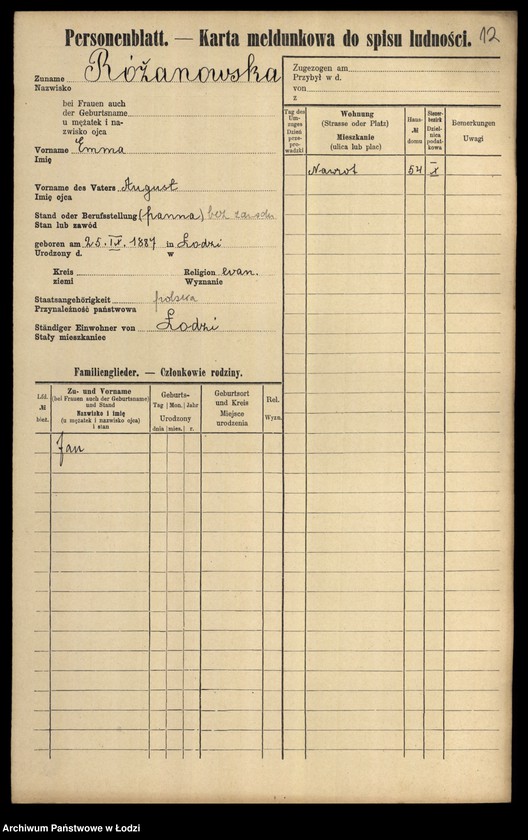 Personenblatt. — Karta meldunkowa do spisu ludności. 12
Zuname Różanowska
Nazwisko
bei Frauen auch
der Geburtsname
u mężatek i na-
zwisko ojca
Vorname Emma
Imię
Vorname des Vaters August
Imię ojca
Stand oder Berufsstellung (panna) bez zawodu
Stan lub zawód
geboren am 25. IX. 1887 in Łodzi
Urodzony d. w
Kreis Religion ewan.
ziemi Wyznanie
Staatsangehörigkeit polska
Przynależność państwowa
Ständiger Einwohner von Łodzi
Stały mieszkaniec
Zugezogen am
Przybył w d.
von
z
Tag des
Um-
zuges
Dzień
prze-
prowadzki
Wohnung
(Strasse oder Platz)
Mieszkanie
(ulica lub plac)
Haus-
№
domu
Steuer-
bezirk
Dziel-
nica
podat-
kowa
Bemerkungen
Uwagi
Nawrot 54 X
Familienglieder. — Członkowie rodziny.
Lfd.
№
bież.
Zu- und Vorname
(bei Frauen auch der Geburtsname)
und Stand
Nazwisko i imię
(u mężatek i nazwisko ojca)
i stan
Geburts-
Tag Mon. Jahr
Urodzony
dnia mies. r.
Geburtsort
und Kreis
Miejsce
urodzenia
Rel.
Wyzn.
Jan
Archiwum Państwowe w Łodzi